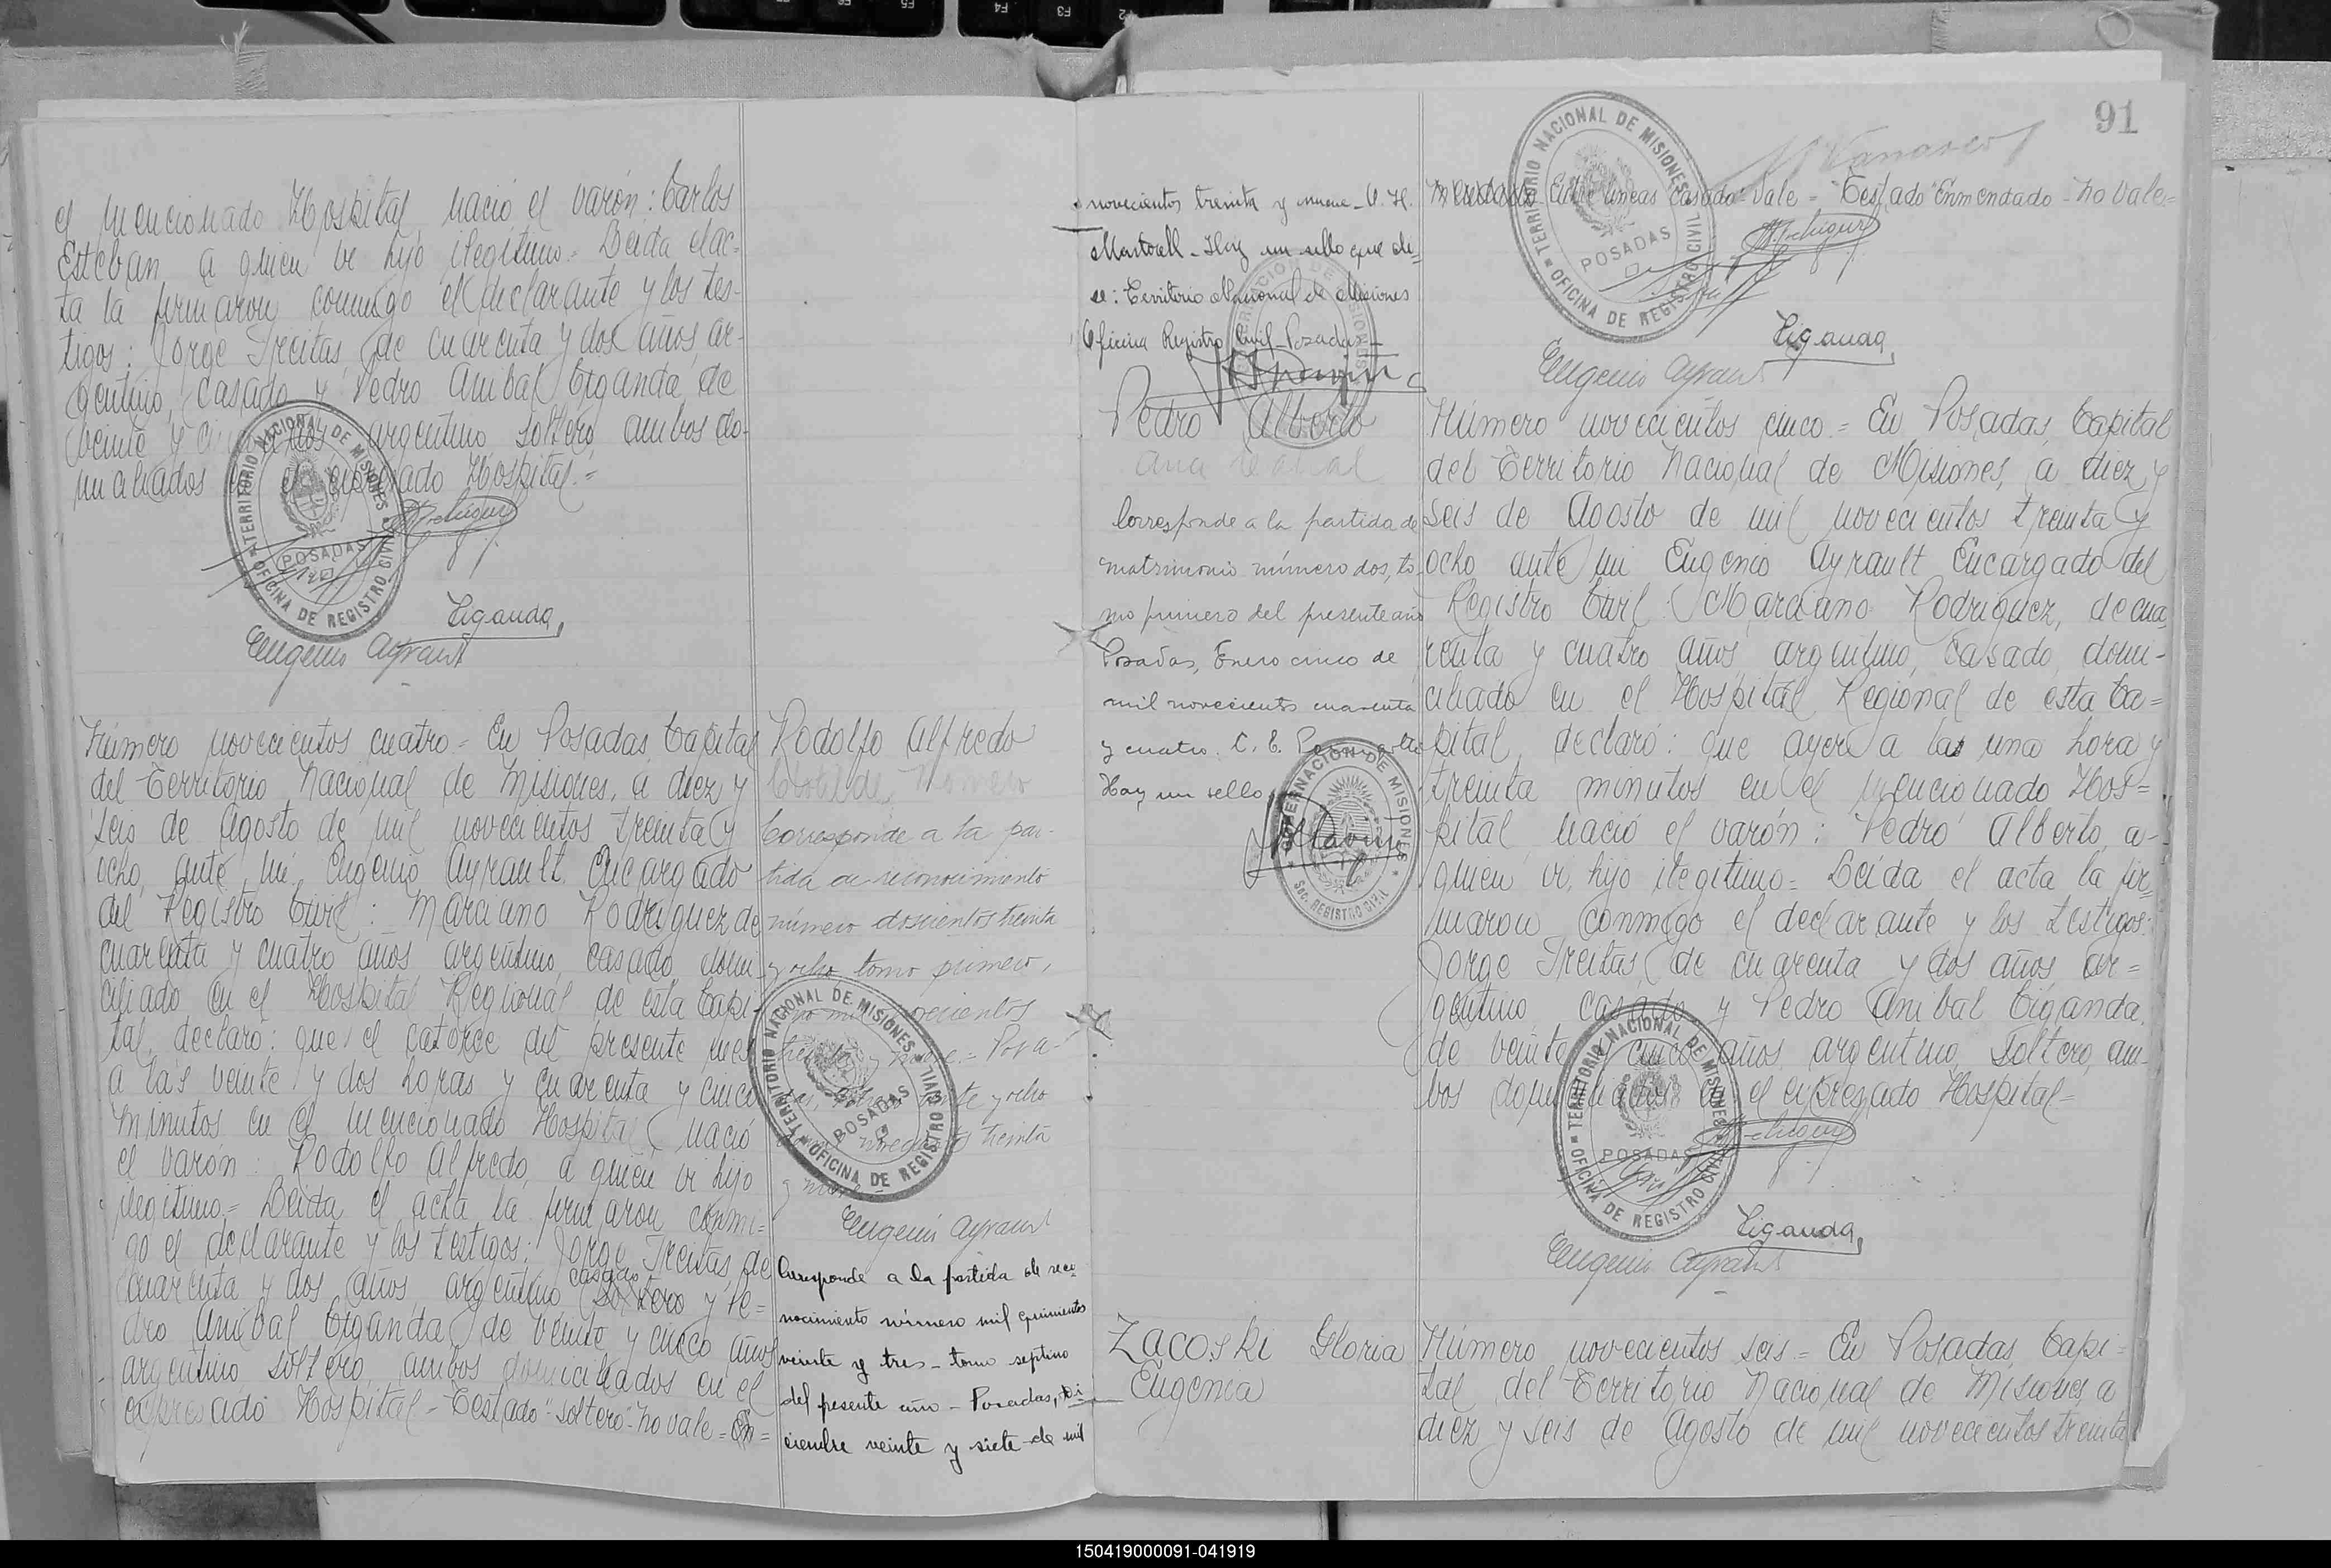 el mencionado Hospital, nació el varón: Carlos
Esteban, a quien ví hijo ilegítimo = Leída el ac-
ta la firmaron conmigo el declarante y los tes-
tigos: Jorge Freitas, de cuarenta y dos años, ar-
gentino, casado y Pedro Anibal Ciganda, de
veinte y argentino soltero, ambos do-
miciliados el expresado Hospital.=
TERRITORIO NACIONAL DE MISIONES
POSADAS
OFICINA DE REGISTRO CIVIL
Ciganda
Eugenio Ayrault
Número novecientos cuatro = En Posadas, Capital
del Territorio Nacional de Misiones, a diez y
seis de Agosto de mil novecientos treinta y
ocho, ante mi, Eugenio Ayrault, Encargado
del Registro Civil: Marciano Rodriguez de
cuarenta y cuatro años, argentino, casado, domi-
ciliado en el Hospital Regional de esta Capi-
tal, declaró: que el catorce del presente mes
a las veinte y dos horas y cuarenta y cinco
minutos en el mencionado Hospital, nació
el varón: Rodolfo Alfredo, a quien ví hijo
ilegítimo = Leída el acta la firmaron conmi-
go el declarante y los testigos: Jorge Freitas de
cuarenta y dos años, argentino casado soltero y Pe=
dro Anibal Ciganda, de veinte y cinco años
argentino, soltero, ambos domiciliados en el
expresado Hospital - Testado "soltero" no vale = En=
Rodolfo Alfredo
Romero
Corresponde a la par-
tida de reconocimiento
número doscientos treinta
y ocho tomo primero,
mil novecientos
treinta y nueve = Posa-
te y ocho
novecientos treinta
y nueve
TERRITORIO NACIONAL DE MISIONES
POSADAS
OFICINA DE REGISTRO CIVIL
Eugenio Ayrault
Corresponde a la partida de reco-
nocimiento número mil quinientos
veinte y tres - tomo septimo
del presente año - Posadas, Di-
ciembre veinte y siete de mil
novecientos treinta y nueve - V. H.
Martorell - Hay un sello que di-
ce: Territorio Nacional de Misiones
Oficina Registro Civil - Posadas -
Pedro Alberto
Corresponde a la partida de
matrimonio número dos, to-
mo primero del presente año
Posadas, Enero cinco de
mil novecientos cuarenta
y cuatro. C. E.
Hay un sello
GOBERNACION DE MISIONES
Sec. REGISTRO CIVIL
Zacoski Gloria
Eugenia
91
TERRITORIO NACIONAL DE MISIONES
POSADAS
OFICINA DE REGISTRO CIVIL
Entre lineas "casado" Vale - Testado "Enmendado" - no vale=
Ciganda
Eugenio Ayrault
Número novecientos cinco = En Posadas, Capital
del Territorio Nacional de Misiones, a diez y
seis de Agosto de mil novecientos treinta y
ocho ante mi Eugenio Ayrault Encargado del
Registro Civil: Marciano Rodriguez, de cua-
renta y cuatro años, argentino, casado, domi-
ciliado en el Hospital Regional de esta Ca=
pital, declaró: que ayer a la una hora y
treinta minutos en el mencionado Hos=
pital, nació el varón: Pedro Alberto, a
quien ví, hijo ilegítimo = Leída el acta la fir=
maron conmigo el declarante y los testigos:
Jorge Freitas, de cuarenta y dos años ar=
gentino, casado y Pedro Anibal Ciganda,
de veinte y cinco años, argentino, soltero, am-
bos domiciliados en el expresado Hospital=
TERRITORIO NACIONAL DE MISIONES
POSADAS
OFICINA DE REGISTRO CIVIL
Ciganda
Eugenio Ayrault
Número novecientos seis = En Posadas, Capi=
tal del Territorio Nacional de Misiones, a
diez y seis de Agosto de mil novecientos treinta
150419000091-041919